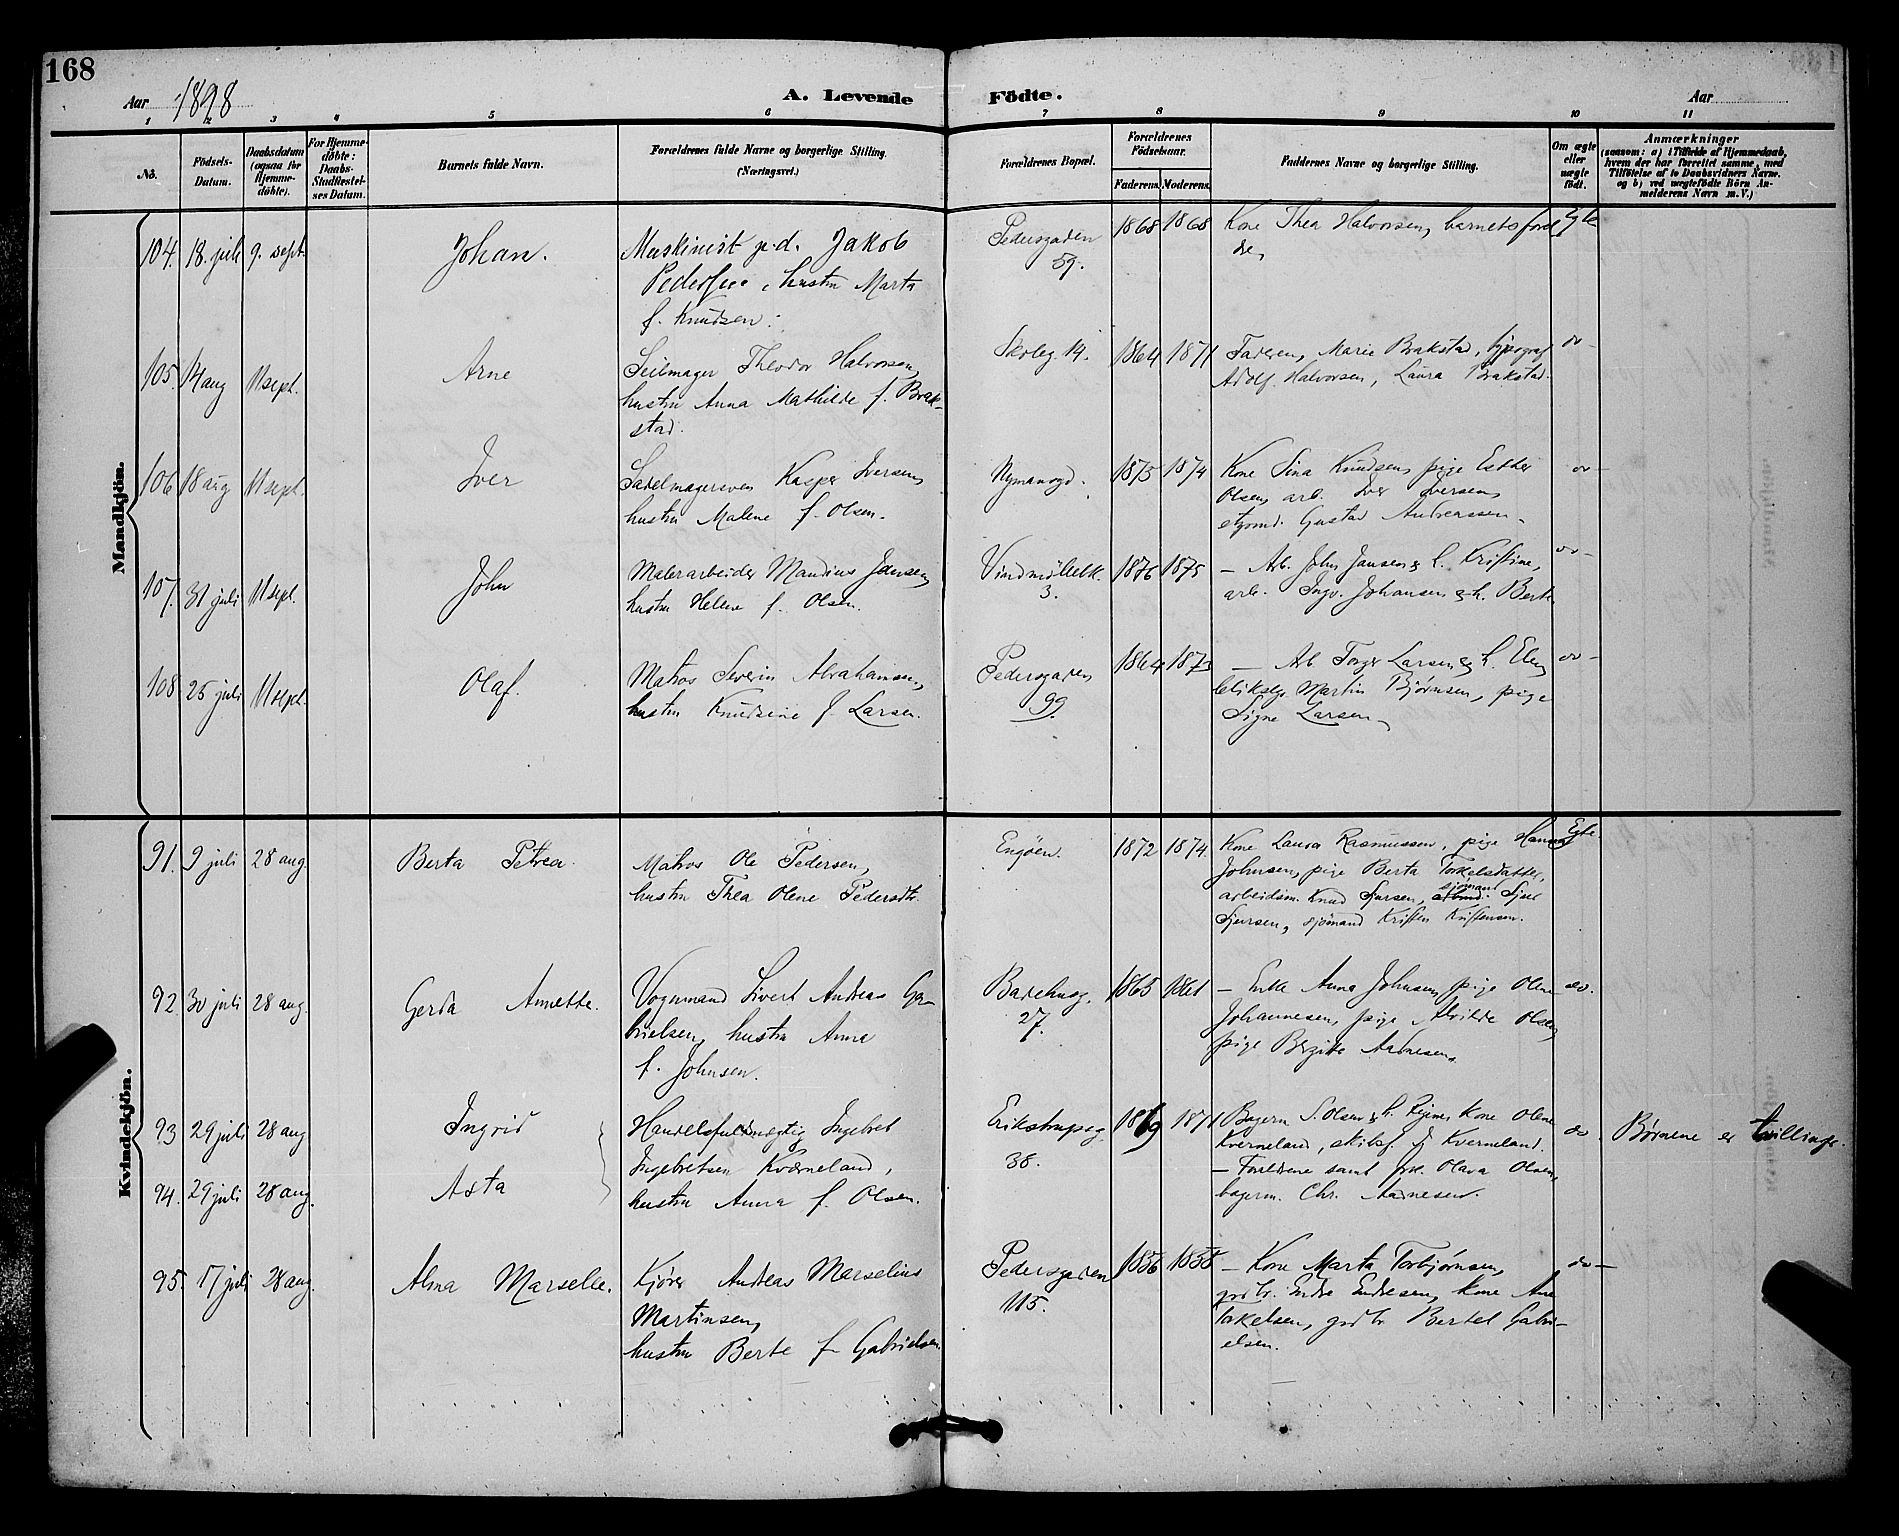 168
Aar 1898
A. Levende Födte.
Aar
1 2 3 4 5 6 7 8 9 10 11
No.
Födsels-Datum.
Daabsdatum (ogsaa for Hjemme-döbte).
For Hjemme-döbte: Daabs-Stadfæstel-ses Datum.
Barnets fulde Navn.
Forældrenes fulde Navne og borgerlige Stilling. (Næringsvei.)
Forældrenes Bopæl.
Forældrenes Födselsaar.
Faderens. Moderens.
Faddernes Navne og borgerlige Stilling.
Om ægte eller uægte födt.
Anmærkninger
(saasom: a) i Tilfælde af Hjemmedaab,
hvem der har forrettet samme, med
Tilföielse af to Daabsvidners Navne.
og b) ved uægtefödte Börn An-
melderens Navn m. V.)
Mandkjön.
104. 18. juli 9. sept. Johan.
Maskinist p.d. Jakob
Pedersen, hustru Marta
f. Knudsen.
Pedersgaden
59.
1868 1868
Kone Thea Halvorsen, barnets foræl
dre,
Egte
105. 14 aug 11 sept. Arne
Seilmager Theodor Halvorsen,
hustru Anna Mathilde f. Brak-
stad.
Skoleg. 14.
1864 1871
Faderen, Marie Brakstad, typograf
Adolf Halvorsen, Laura Brakstad.
do-
106 18 aug 11 sept. Iver
Sadelmagersven Kasper Iversen,
hustru Malene f. Olsen.
Nymansgd.
1875 1874
Kone Sina Knudsen, pige Esther
Olsen, arb. Iver Iversen,
styrmd. Gustav Andreassen.
do-
107. 31 juli 11 sept. John
Malerarbeider Mandius Jansen,
hustru Helene f. Olsen.
Vindmøllebk.
3.
1876 1875
— Arb. John Jansen & h. Kristine,
arb. Ingv. Johansen & h. Berte.
do-
108 25 juli 11 sept. Olaf.
Matros Severin Abrahamsen,
hustru Knudsine f. Larsen.
Pedersgaden
99.
1864 1873
— Arb Torger Larsen & h. Elen,
blikslgr. Martin Bjørnsen, pige
Signe Larsen.
do-
Kvindekjön.
91. 9 juli 28 aug. Berta Petrea.
Matros Ole Pedersen,
hustru Thea Olene Pedersdtr.
Engøen.
1872 1874.
Kone Laura Rasmussen, pige Hanna
Johnsen, pige Berta Torkelsdatter,
arbeidsm. Knud Sjursen, sjømand Sjur
Sjursen, sjömand Kristen Kristensen.
Egte.
92. 30 juli 28 aug. Gerda Annette.
Vognmand Sivert Andreas Ga-
brielsen, hustru Anna
f. Johnsen.
Badehusg.
27.
1865 1861
— Enke Anna Johnsen, pige Olene
Johannesen, pige Alvilde Olsen,
pige Bergitte Aadnesen.
do.
93 29 juli 28 aug Ingrid
94. 29 juli 28 aug. Asta
Handelsfuldmægtig Ingebret
Ingebretsen Kværneland,
hustru Anna f. Olsen.
Erikstrupsg.
38.
1869 1871
Bagerm S. Olsen & h. Regine, Kone Olene
Kverneland, skibsf. Kverneland.
— Forældrene samt frk. Olava Olsen,
bagerm. Chr. Aadnesen.
do.
Børnene er tvillinger.
95. 17 juli 28 aug. Alma Marselie.
Kjører Andreas Marselius
Martinsen,
hustru Berte f. Gabrielsen
Pedersgaden
115.
1856 1858
— Kone Marta Torbjørnsen,
grdbr. Endre Endresen, Kone Ane
Torkelsen, grdbr Bertel Gabri-
elsen.
do-